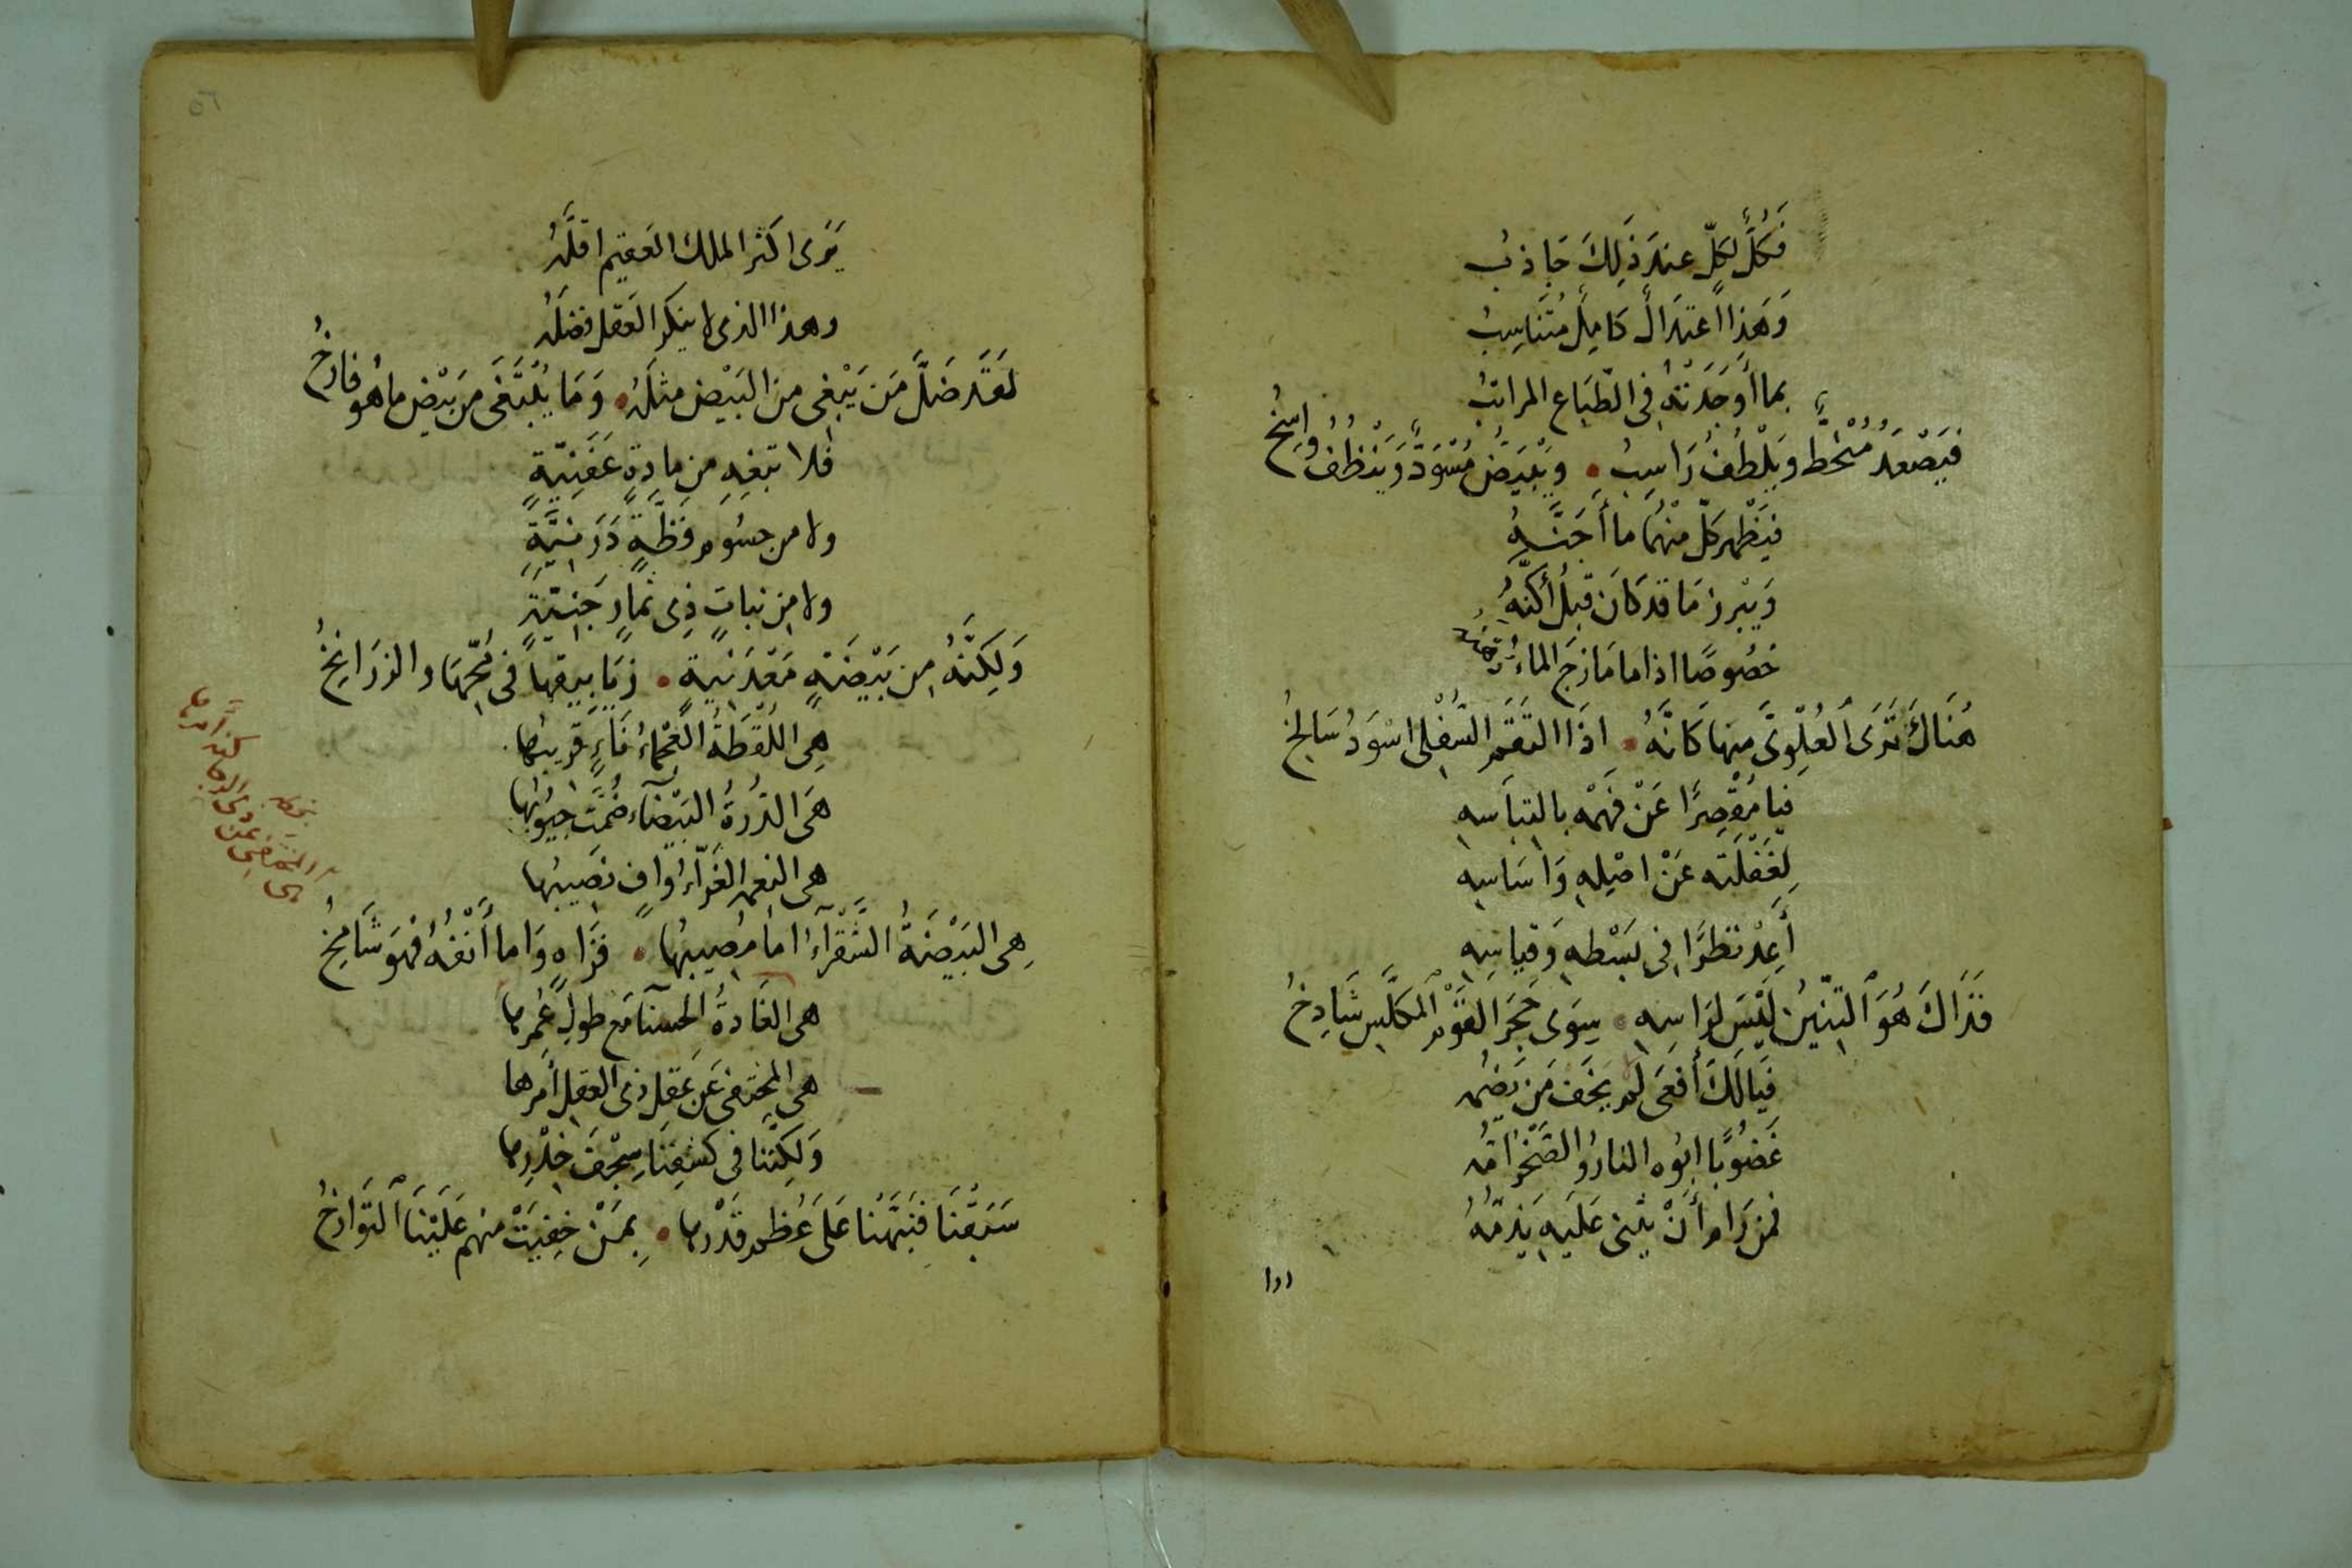 فَكُلٌّ لِكُلٍّ عِندَ ذَلِكَ جَاذِبُ
وَهَذَا اعتِدَالٌ كَامِلٌ مُتَنَاسِبُ
بما أَوجَدَتْهُ فى الطِّبَاعِ المراتبُ
فَيَصْعَدُ مُنْحَطٌّ وَيَلْطُفُ رَاسِبُ • وَيَبْيَضُّ مُسْوَدٌّ وَيَنْظُفُ وَاسِخُ
فيَظْهر كلٌّ مِنْهُما ما أَجَنَّهُ
وَيَبْرز مَا قد كَانَ قبلُ أَكَنَّهُ
خصُوصًا اذا ما مَازجَ الماءُ
هُنَاكَ تَرَى العُلْوِىَّ مِنها كَانَّهُ • اذَا التَقَمَ السُّفْلِى اسْوَدُ سَالِخُ
فيا مُقْصِرًا عَنْ فَهْمِه بالتباسِهِ
لِغَفْلَتِه عَنْ اصْلِهِ وَاسَاسِهِ
أَعِدْ نظَرًا فى بَسْطِهِ وَقياسِهِ
فَذَاكَ هُوَ التِنِّينُ لَيْسَ لِرَاسِهِ • سِوَى حَجَرِ القَوْمِ المكَلَّسِ شَادِخُ
فَيَا لَكَ أَفعَى لَم يَخَف مَن يَضُمّه
غَضُوبًا ابُوه النارُ والصَّخْرُ امُّه
فمن رَامَ أَنْ يُثنى عَلَيهِ يَذمّهُ
يَرَى اكثرَ الملك العَقيم اقلَّهُ
وهذا الذى لا ينكر العَقل فضلَهُ
لَقَد ضَلَّ مَن يَبْغِى من البَيْض مثلَهُ • وَمَا يُبْتَغَى مِن بَيْضِ ما هُو فارخُ
فلا تبغِهِ مِن مادةٍ عَفَنِيّةٍ
ولا من جسُومٍ فَظَّةٍ دَرَنِيَّةٍ
ولا مِن نباتٍ ذِى ثمارٍ جَنِيَّةٍ
وَلَكِنَّهُ مِن بَيْضَةٍ مَعْدَنِيةٍ • زيَابيقها فى مُحّهَا والزرَانِخُ
هِىَ اللُّقْطَةُ العَجْماءُ نَاءٍ قريبُها
هَىَ الدُّرَةُ البَيْضآء ضُمَّت جُيُوبُها
هى النعم الغَرّآءُ وافٍ نصَيبُها
هِى البَيْضَةُ الشَّقْرَآءُ اما مُصِيبُها • فَزَاهٍ وَاما أَنفُهُ فهوَ شَامِخُ
هى الغَادةُ الحسنآ مَع طولِ عُمرها
هى المختفى عَن عَقلِ ذى العقل أَمرها
وَلَكِنَّنا فى كشفِنَا سِجْفَ خِدْرِها
سَبَقْنَا فنَبَّهْنا عَلَى عُظمِ قَدْرها • بِمَنْ خفِيَتْ منهم عَلَيْنَا التَوَارخُ